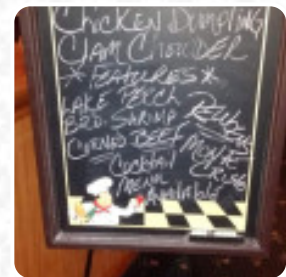 Chicken Dumpling
Clam Chowder
* Features *
Lake Perch
BRD. Shrimp
Corned Beef
Cocktail
Menu
Available